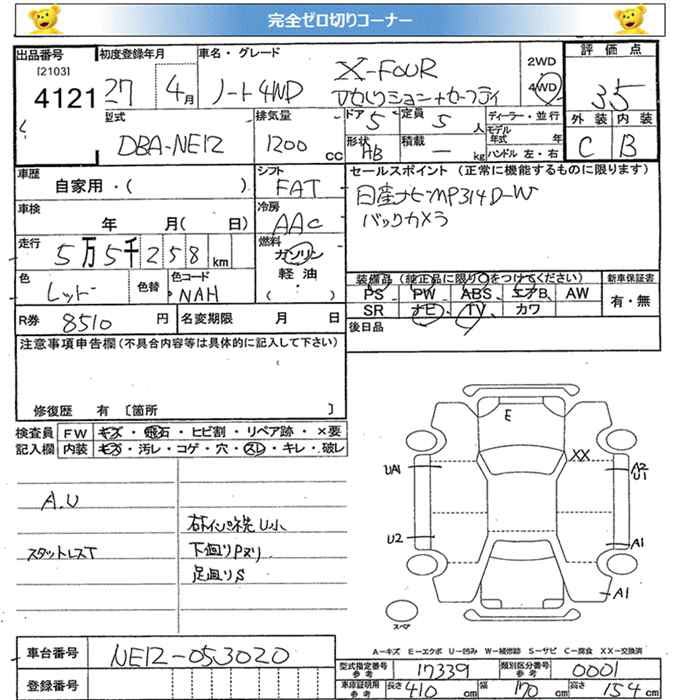 完全ゼロ切りコーナー
出品番号 初度登録年月 車名・グレード 2WD 評価点
[2103]
4121 27 4月 ノート4WD X-FOUR 4WD 35
アセレクション+セーフティ
型式 排気量 ドア 5 定員 5人 ディーラー・並行 外装 内装
DBA-NE12 1200cc 形状 HB 積載 — kg モデル年式 年 ハンドル 左・右 C B
車歴 シフト セールスポイント (正常に機能するものに限ります)
自家用・( ) FAT 日産ナビMP314D-W
車検 冷房 バックカメラ
年 月( 日) AAC
走行 5万5千258km 燃料 ガソリン
軽油
( ・ )
色 レッド 色替 色コード NAH
装備品 (純正品に限り○をつけてください) 新車保証書
PS PW ABS エアB AW 有・無
SR ナビ TV カワ
R券 8510円 名変期限 月 日 後日品
注意事項申告欄(不具合内容等は具体的に記入して下さい)
修復歴 有 〔箇所 〕
検査員 FW キズ・飛石・ヒビ割・リペア跡・×要
記入欄 内装 キズ・汚レ・コゲ・穴・スレ・キレ・破レ
A.U
スタットレスT
右インパネ先U小
下回りPヌリ
足回りS
E
XX
UA1
A2
U1
U2
A1
A1
スペア
A-キズ E-エクボ U-凹み W-補修跡 S-サビ C-腐食 XX-交換済
車台番号 NE12-053020
登録番号
型式指定番号 参考 17339 類別区分番号 参考 0001
車庫証明用 参考 長さ 410cm 幅 170cm 高さ 154cm